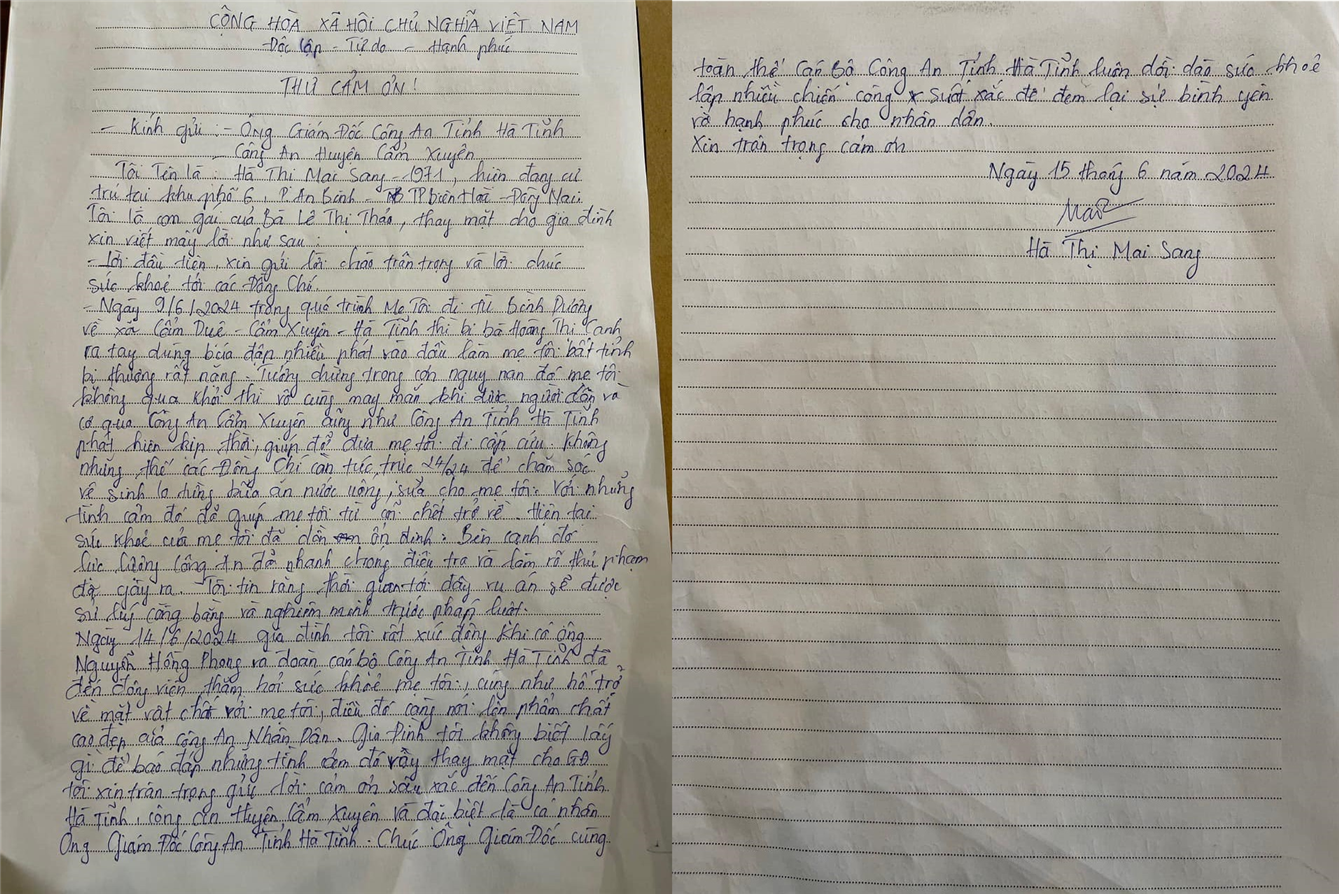 CỘNG HÒA XÃ HỘI CHỦ NGHĨA VIỆT NAM
Độc lập - Tự do - Hạnh phúc
THƯ CẢM ƠN!
- Kính gửi: - Ông Giám Đốc Công An Tỉnh Hà Tĩnh
- Công An Huyện Cẩm Xuyên
Tôi Tên là: Hà Thị Mai Sang - 1971, hiện đang cư
trú tại khu phố 6, P. An Bình - TP biên Hoà - Đồng Nai
Tôi là con gái của Bà Lê Thị Thảo, thay mặt cho gia đình
xin viết mấy lời như sau:
- Lời đầu tiên, xin gửi lời chào trân trọng và lời chúc
sức khoẻ tới các Đồng Chí.
- Ngày 9/6/2024 trong quá trình Mẹ Tôi đi từ bình Dương
về xã Cẩm Duệ - Cẩm Xuyên - Hà Tĩnh thì bị bà Hoàng Thị Lanh
ra tay dùng búa đập nhiều phát vào đầu làm mẹ tôi bất tỉnh
bị thương rất nặng. Tưởng chừng trong cơn nguy nan đó mẹ tôi
không qua khỏi thì vô cùng may mắn khi được người dân và
cơ qua Công An Cẩm Xuyên cũng như Công An Tỉnh Hà Tĩnh
phát hiện kịp thời, giúp đỡ đưa mẹ tôi đi cấp cứu. Không
những thế các Đồng Chí còn túc trực 24/24 để chăm sóc
vệ sinh lo từng bữa ăn nước uống, sữa cho mẹ tôi. Với những
tình cảm đó đã giúp mẹ tôi từ cõi chết trở về. Hiện tại
sức khoẻ của mẹ tôi đã dần ổn định. Bên cạnh đó
lực lượng Công An đã nhanh chóng điều tra và làm rõ thủ phạm
đã gây ra. Tôi tin rằng thời gian tới đây vụ án sẽ được
sử lý công bằng và nghiêm minh trước pháp luật.
Ngày 14/6/2024 gia đình tôi rất xúc động khi có ông
Nguyễn Hồng Phong và đoàn cán bộ Công An Tỉnh Hà Tĩnh đã
đến động viên thăm hỏi sức khoẻ mẹ tôi, cũng như hỗ trở
về mặt vật chất với mẹ tôi, điều đó càng nói lên phẩm chất
cao đẹp của Công An Nhân Dân. Gia Đình tôi không biết lấy
gì để bao đáp những tình cảm đó vậy thay mặt cho GĐ
tôi xin trân trọng gửi lời cảm ơn sâu xắc đến Công An Tỉnh
Hà Tĩnh, công an Huyện Cẩm Xuyên và đặi biệt là cá nhân
Ông Giám Đốc Công An Tỉnh Hà Tĩnh. Chúc Ông Giám Đốc cùng
toàn thể Cán Bộ Công An Tỉnh Hà Tĩnh luôn dồi dào sức khoẻ
lập nhiều chiến công suất xắc để đem lại sự bình yên
và hạnh phúc cho nhân dân.
Xin trân trọng cảm ơn
Ngày 15 tháng 6 năm 2024
Hà Thị Mai Sang